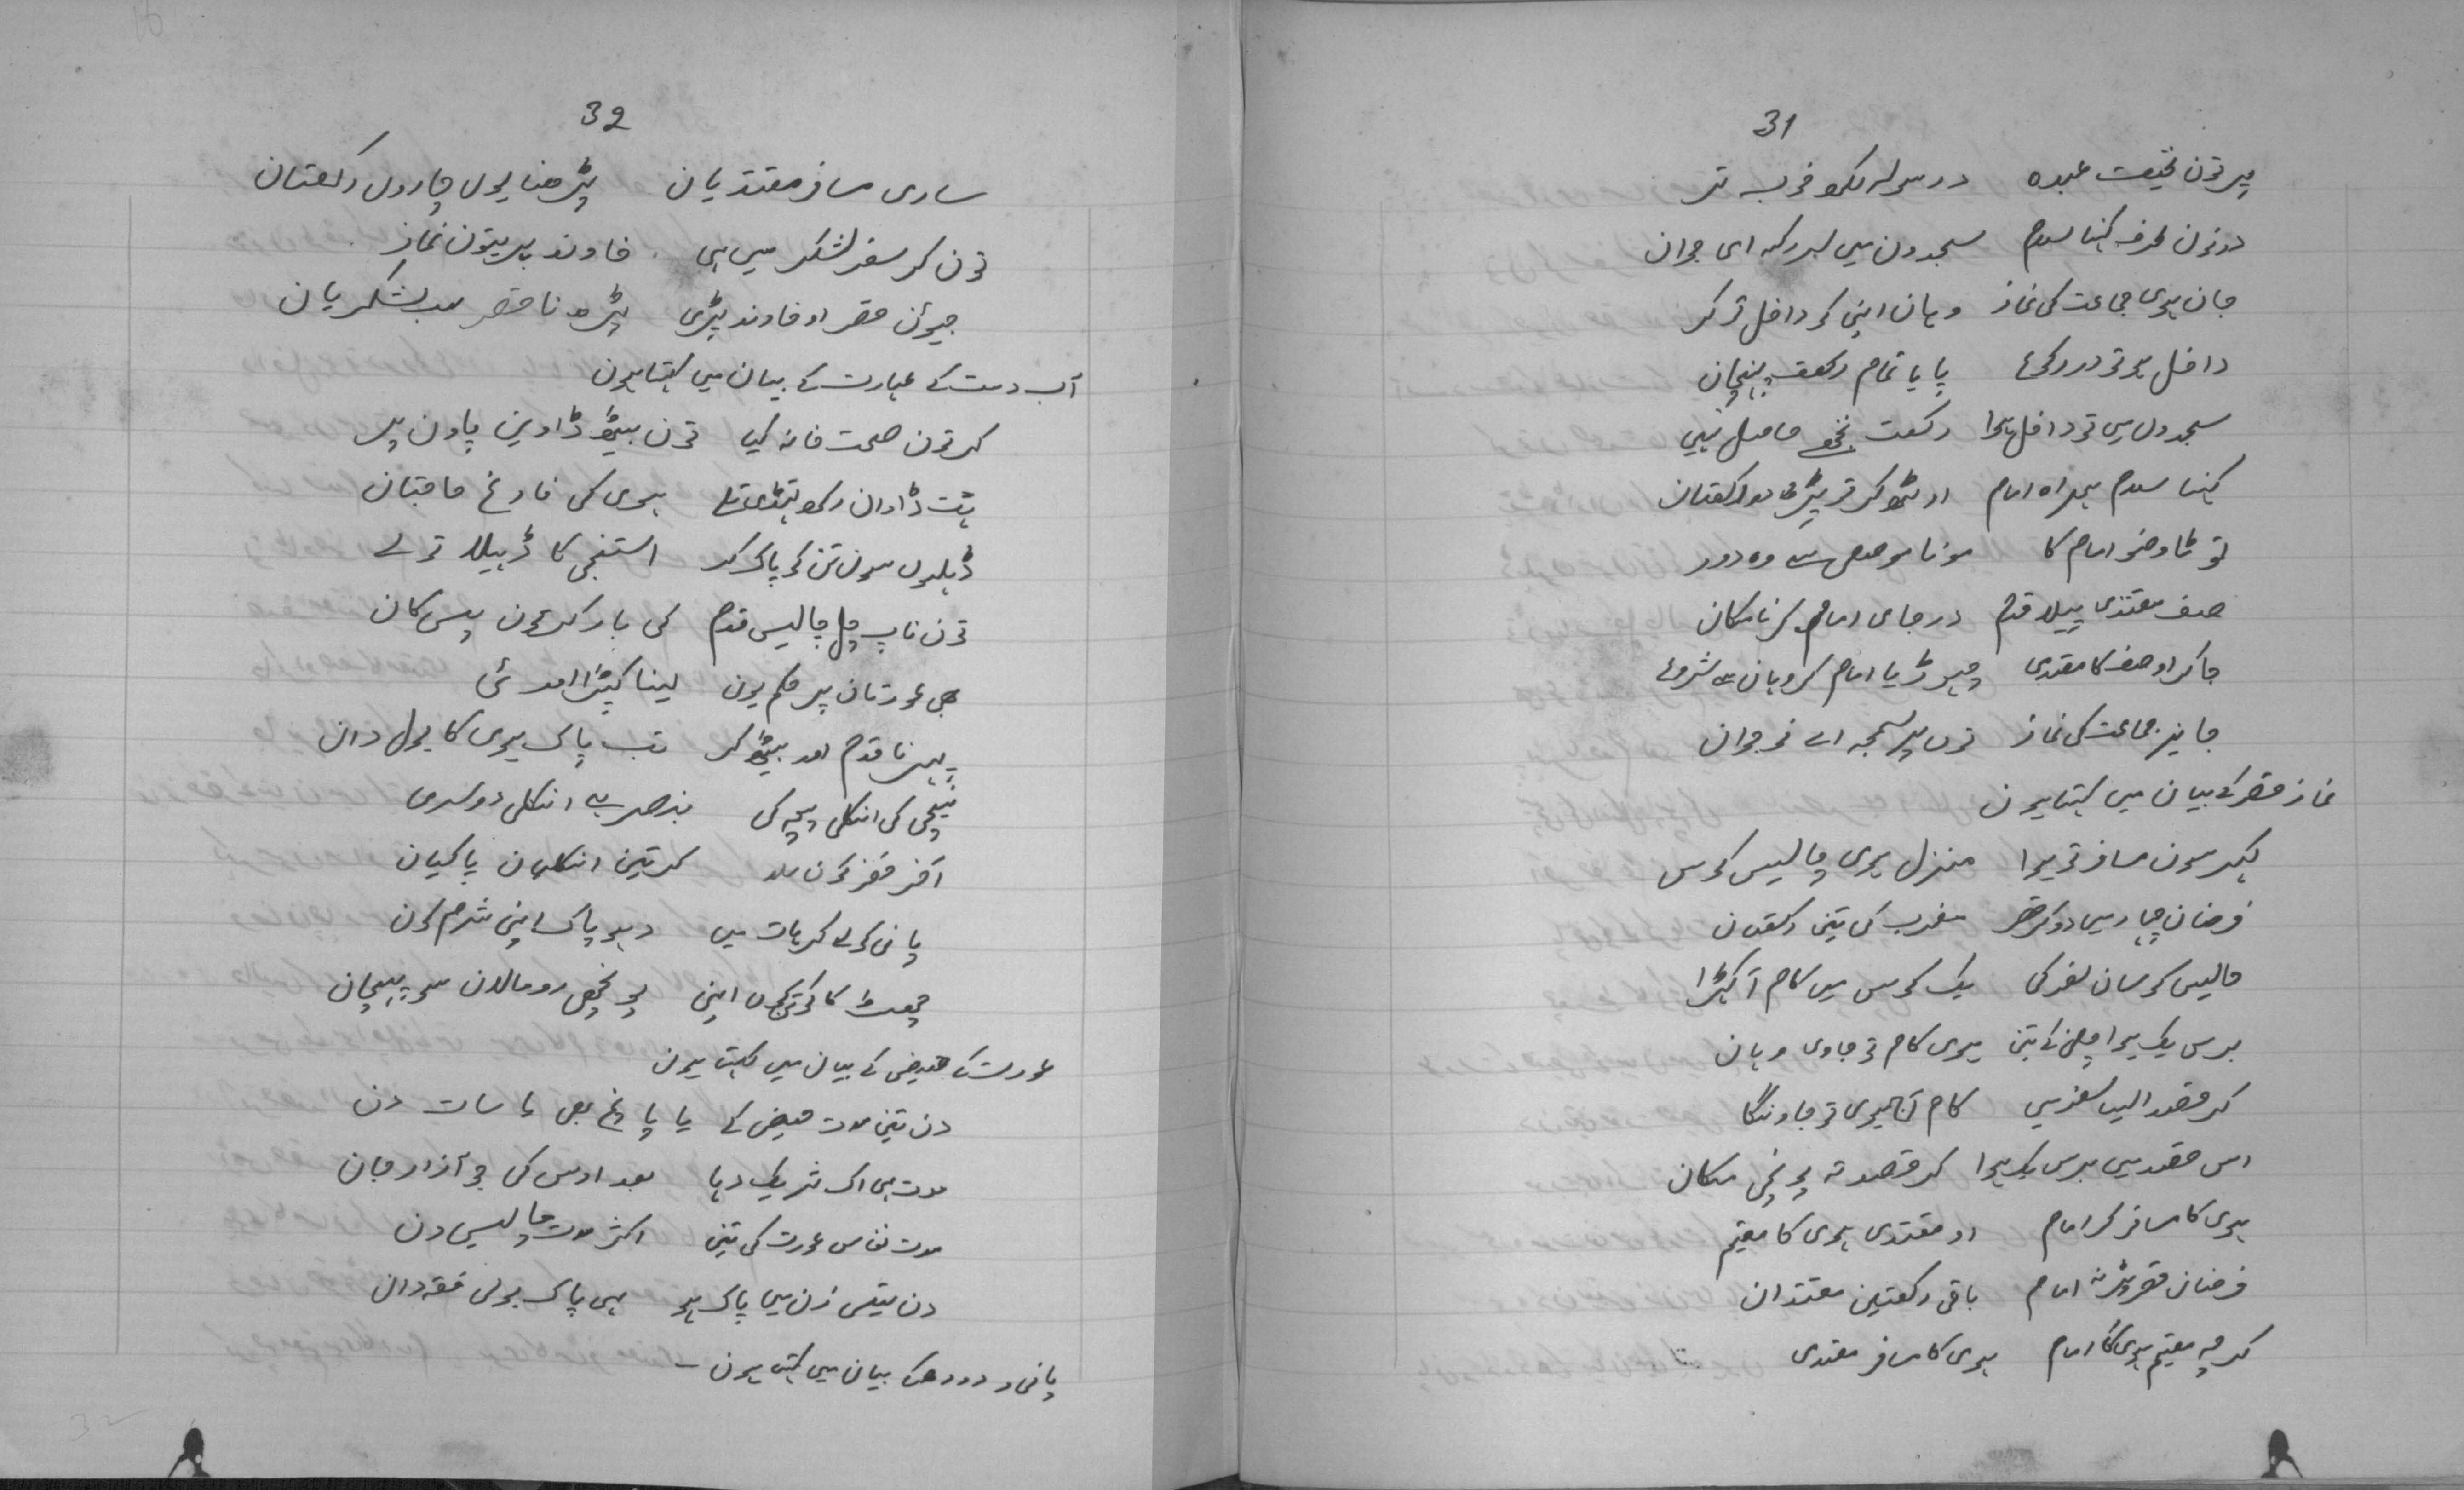 31
پر تون تحیت عبده در سولہ لکھ خوب تر
دونون طرف کہنا سلام سجدون میں سر رکہ ای جوان
جان ہوی جماعت کی نماز وہان اپنی کو داخل تو کر
داخل ہو تو در رکوع پایا تمام رکعت پہنچان
سجدوں میں تو داخل ہوا رکعت تجھے حاصل نہیں
کہنا سلام ہمراہ امام اوٹھ کر تو پڑھ دو رکعتان
ٹوٹا وضو امام کا ہونا مصلی سے وہ دور
صف مقتدی پہلا قدم در جای امام کرنا مکان
جا کر او صف کا مقتدی چھوڑیا امام کروہان سے شروع
جایز جماعت کی نماز توں پر سمجہ اے نوجوان
نماز قصر کے بیان میں کہتا ہون
گہر سون مسافر تو ہوا منزل ہوی چالیس کوس
فرضان چار میں دو کر قصر مغرب کی تین رکعتان
چالیس کوسان سفر کی یک کوس میں کام آ کھڑا
برس یک ہوا چلنے کے تین ہوی کام تو جاوی وہان
کر قصد الیسا سفر میں کام آ ہوی تو جاونگا
اس قصد میں برس یک ہوا کر قصد تہ پونچی مکان
ہوی کا مسافر کر امام او مقتدی ہوی کا مقیم
فرضان قصر پڑھے امام باقی رکعتین مقتدان
کرچہ مقیم ہوی گا امام ہوی کا مسافر مقتدی
32
ساری مسافر مقتدیان پڑھنا یوں چاروں رکعتان
تون کر سفر لشکر میں ہی خاوند پر یتون نماز
جیون قصر او خاوند پڑی پڑھنا قصر سب لشکریان
آب دست کے عبارت کے بیان میں کہتا ہون
کر تون صحت خانہ کیا تون بیٹھ ڈاوین پاون پر
ہت ڈاوان رکھ تہڈی تلے ہوی کی فارغ حاجتان
ڈہلیوں سون تن کو پاک کر استنجی کا ڈہیلا تو لے
تون ناپ چل چالیس قدم کی بار کر تون پس کان
جی عورتان پر حکم یون لینا کپڑا اور نئی
پہرنا قدم اور بیٹھ کر تب پاک ہوی کا بول دان
نیچی کی انگلی بیچ کی بنصر ہے انگلی دوسری
آخر خنفر کون ملا کر تین انگلیان پاکیان
پانی کو لے کر ہات میں دہو پاک اپنی شرم کون
چھوٹا کا کو تجکوں اپنی پونچھی رومالان سو پہچان
عورت کے حیض کے بیان میں کہتا ہون
دن تین مدت حیض کے یا پانچ بھی یا سات دن
مدت ہی اک شریک دہا بعد اوس کی جو آزار جان
مدت نفاس عورت کی تین اکثر مدت چالیس دن
دن تیس زن میں پاک ہو ہی پاک بولی فقہ دان
پانی و دودھ کے بیان میں کہتا ہون